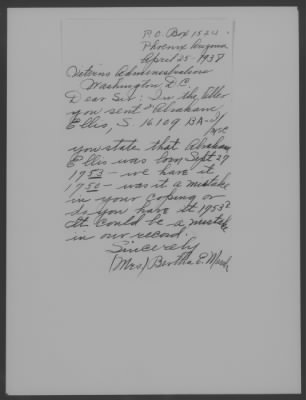 P.O. Box 1524.
Phoenix Arizona
April 25-1938
Veterans Administration
Washington, D.C.
Dear Sir: In the letter
you sent Abraham
Ellis, S. 16109 BA-J/
you state that Abraham
Ellis was born Sept 27
1753 - we have it
1750 - was it a mistake
in your copying or
do you have it 1753?
It could be a mistake
in our record.
Sincerely
(Mrs) Bertha E.